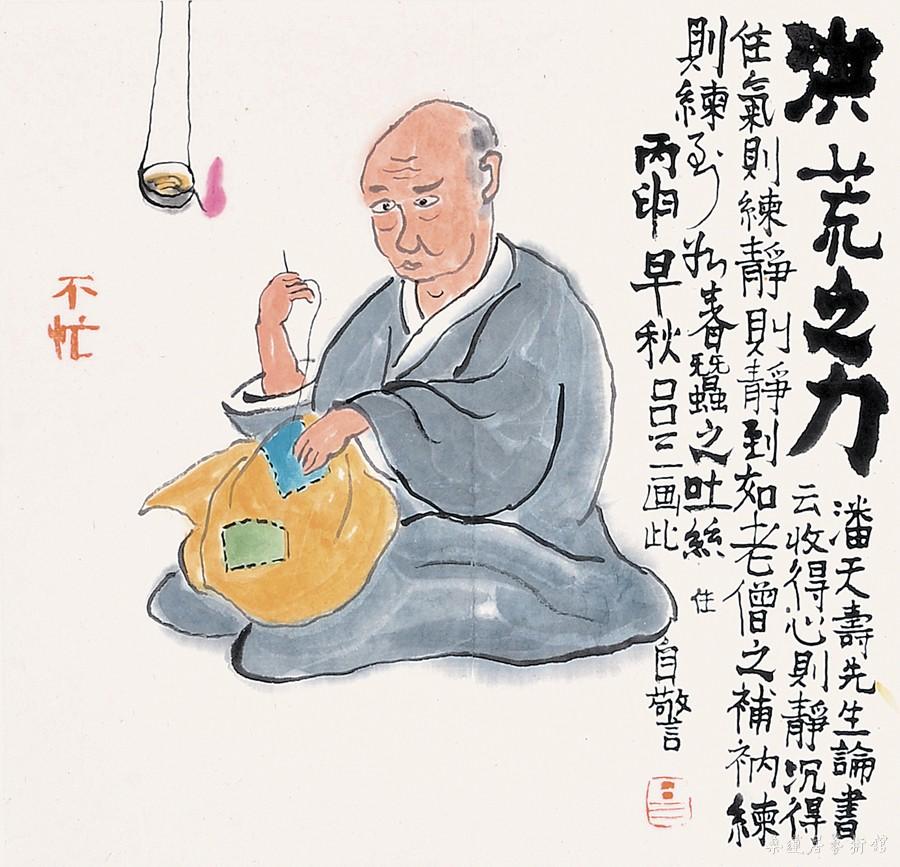 洪荒之力
潘天壽先生論書
云收得心則靜沉得
住氣則練靜則靜到如老僧之補衲練
則練到如春蠶之吐絲 住
丙申早秋吕三画此 自警
不忙
桑蓮居藝術館